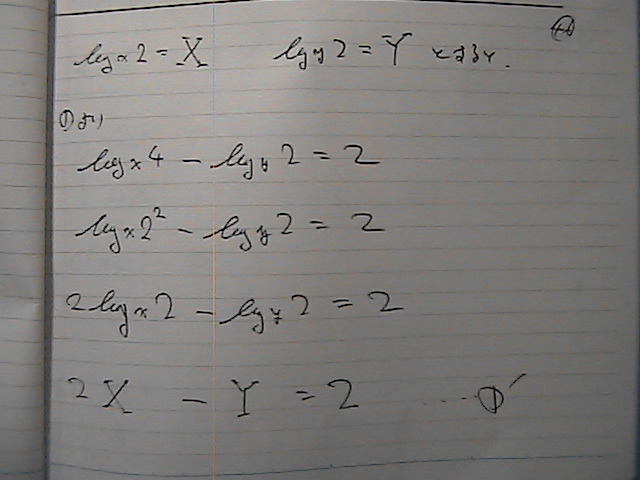 log_x 2 = X log_y 2 = Y とおくと.
①より
log_x 4 - log_y 2 = 2
log_x 2² - log_y 2 = 2
2 log_x 2 - log_y 2 = 2
2X - Y = 2 ... ①′